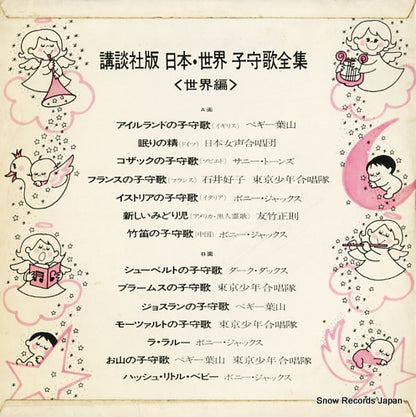 講談社版 日本・世界 子守歌全集
＜世界編＞
A面
アイルランドの子守歌(イギリス) ペギー葉山
眠りの精(ドイツ) 日本女声合唱団
コザックの子守歌(ソビエト) サニー・トーンズ
フランスの子守歌(フランス) 石井好子 東京少年合唱隊
イストリアの子守歌(イタリア) ボニー・ジャックス
新しいみどり児(アメリカ・黒人霊歌) 友竹正則
竹笛の子守歌(中国) ボニー・ジャックス
B面
シューベルトの子守歌 ダーク・ダックス
ブラームスの子守歌 東京少年合唱隊
ジョスランの子守歌 ペギー葉山
モーツァルトの子守歌 東京少年合唱隊
ラ・ラルー ボニー・ジャックス
お山の子守歌 ペギー葉山 東京少年合唱隊
ハッシュ・リトル・ベビー ボニー・ジャックス
Snow Records Japan